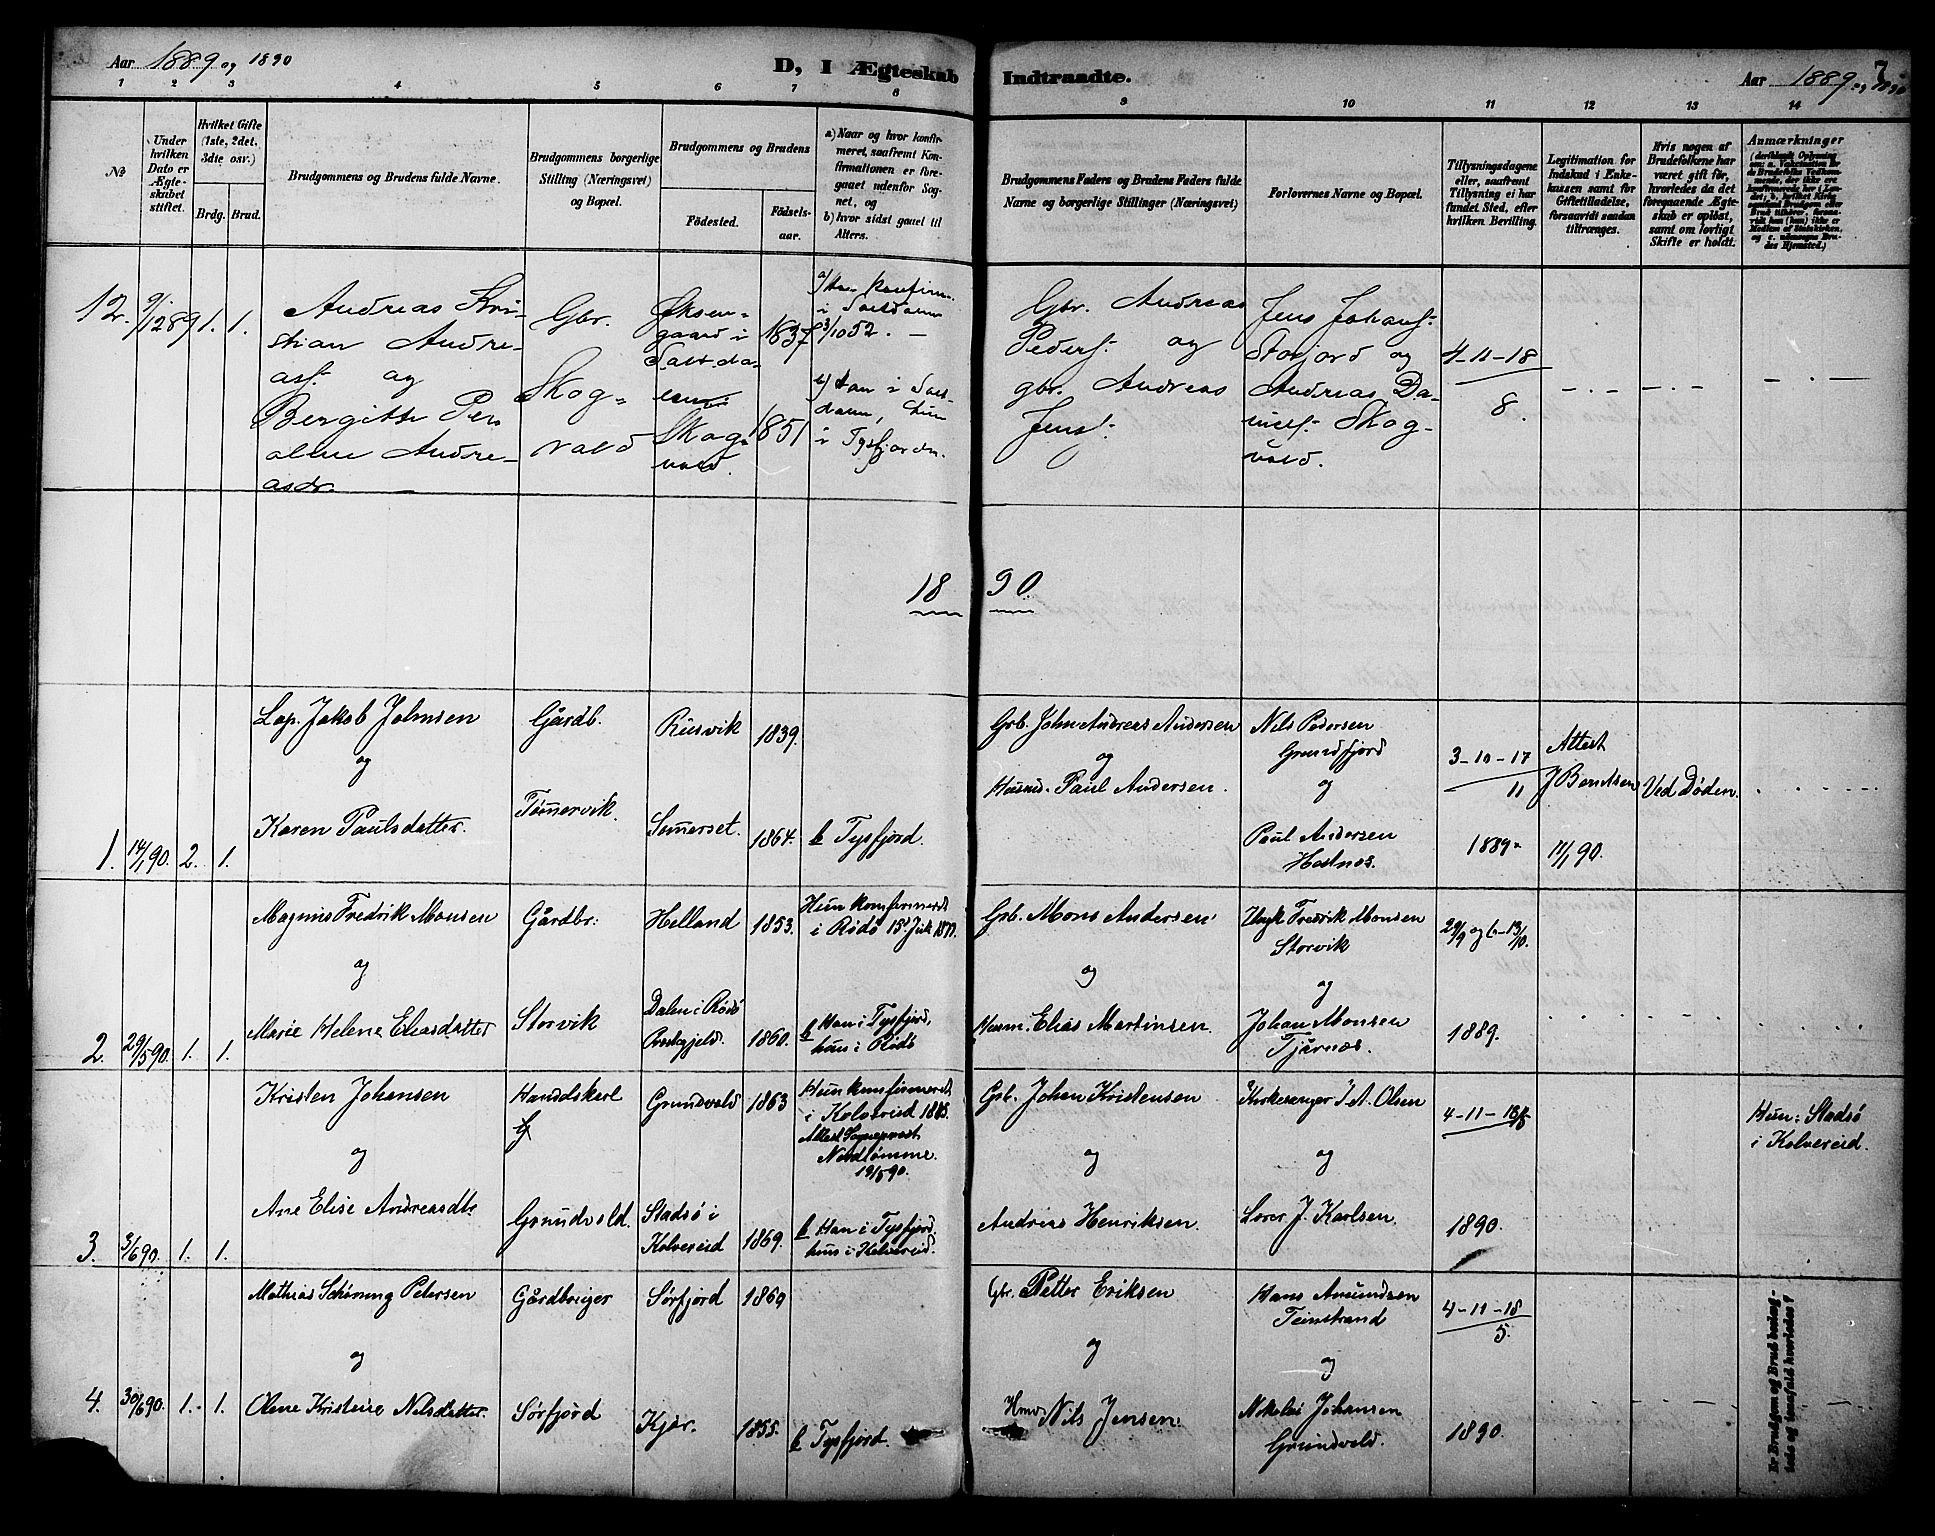 Aar 1889 og 1890
D, I Ægteskab Indtraadte.
Aar 1889 og 1890
7
1 2 3 4 5 6 7 8 9 10 11 12 13 14
No
Under hvilken Dato er Ægteskabet stiftet.
Hvilket Gifte (1ste, 2det, 3die osv.)
Brdg. Brud.
Brudgommens og Brudens fulde Navne.
Brudgommens borgerlige Stilling (Næringsvei) og Bopæl.
Brudgommens og Brudens
Fødested.
Fødselsaar.
a) Naar og hvor konfirmeret, saafremt Konfirmationen er foregaaet udenfor Sognet, og
b) hvor sidst gaaet til Alters.
Brudgommens Faders og Brudens Faders fulde Navne og borgerlige Stillinger (Næringsvei)
Forlovernes Navne og Bopæl.
Tillysningsdagene eller, saafremt Tillysning ei har fundet Sted, efter hvilken Bevilling.
Legitimation for Indskud i Enkekassen samt for Giftetilladelse, forsaavidt saadan tiltrænges.
Hvis nogen af Brudefolkene har været gift før, hvorledes da det foregaaende Ægteskab er opløst, samt om lovligt Skifte er holdt.
Anmærkninger
12. 9/12 89 1. 1.
Andreas Kri-
stian Andre-
asf. og
Bergitte Per
oline Andre-
asdr.
Gbr.
Skog-
vold
Øksen-
gaard i
Saltda-
len
Skog-
vold.
1837
1851
a) Han konfirm.
i Saltdalen
3/10 52. —
b) Han i Salt-
dalen, hun
i Tysfjorden.
Gbr. Andreas
Pedersf. og
gbr. Andreas
Jensf.
Jens Johansf.
Storjord og
Andreas Da-
nielsf. Skog-
vold.
4-11-18
8.
18 90
1. 14/1 90. 2. 1.
Lap. Jakob Johnsen
og
Karen Paulsdatter.
Gårdb.
Tømmervik.
Rusvik 1839.
Sommerset. 1864.
b Tysfjord.
Grb. John Andreas Andersen
og
Husm. Paul Andersen.
Nils Pedersen
Grundfjord
og
Paul Andersen
Hostnes.
3-10-17
11
1889.
Attest
J Berntsen
11/1 90.
Ved Døden.
2. 29/5 90. 1. 1.
Magnus Fredrik Monsen
og
Marie Helene Eliasdatter
Gårdbr.
Storvik
Helland 1853.
Dalen i Rödö
Prestegjeld. 1860.
Hun konfirmeret
i Rödö 15 Juli 1877.
b Han i Tysfjord,
hun i Rödö
Grb. Mons Andersen.
og
Husm. Elias Martinsen.
Ungk Fredrik Monsen
Storvik
og
Johan Monsen
Tjårnes.
29/9 og 6-13/10.
1889.
3. 3/6 90. 1. 1.
Kristen Johansen
og
Ane Elise Andreasdtr.
Handelskarl
Grundvold.
Grundvold 1863
Stadsö i
Kolvereid 1869.
Hun konfirmeret
i Kolvereid 1885.
Attest Sogneprest
Nordtömme.
19/5 90.
b Han i Tysfjord,
hun i Kolvereid.
Grb. Johan Kristensen
og
Andreas Henriksen
Kirkesanger I. A. Olsen
og
Lærer J. Karlsen.
4-11-18/5
1890.
Hun: Stadsö
i Kolvereid.
4. 30/6 90. 1. 1.
Mathias Schöning Petersen
og
Oline Kristine Nilsdatter.
Gårdbruger
Sörfjord
Sörfjord 1869
Kjær. 1855.
b Tysfjord.
Gbr. Petter Eriksen
og
Hmd Nils Jensen.
Hans Amundsen
Teinstrand
og
Nikolai Johansen
Grundvold.
4-11-18
5.
1890.
Er Brudgom og Brud beslæg-
tede og isaafald hvorledes?